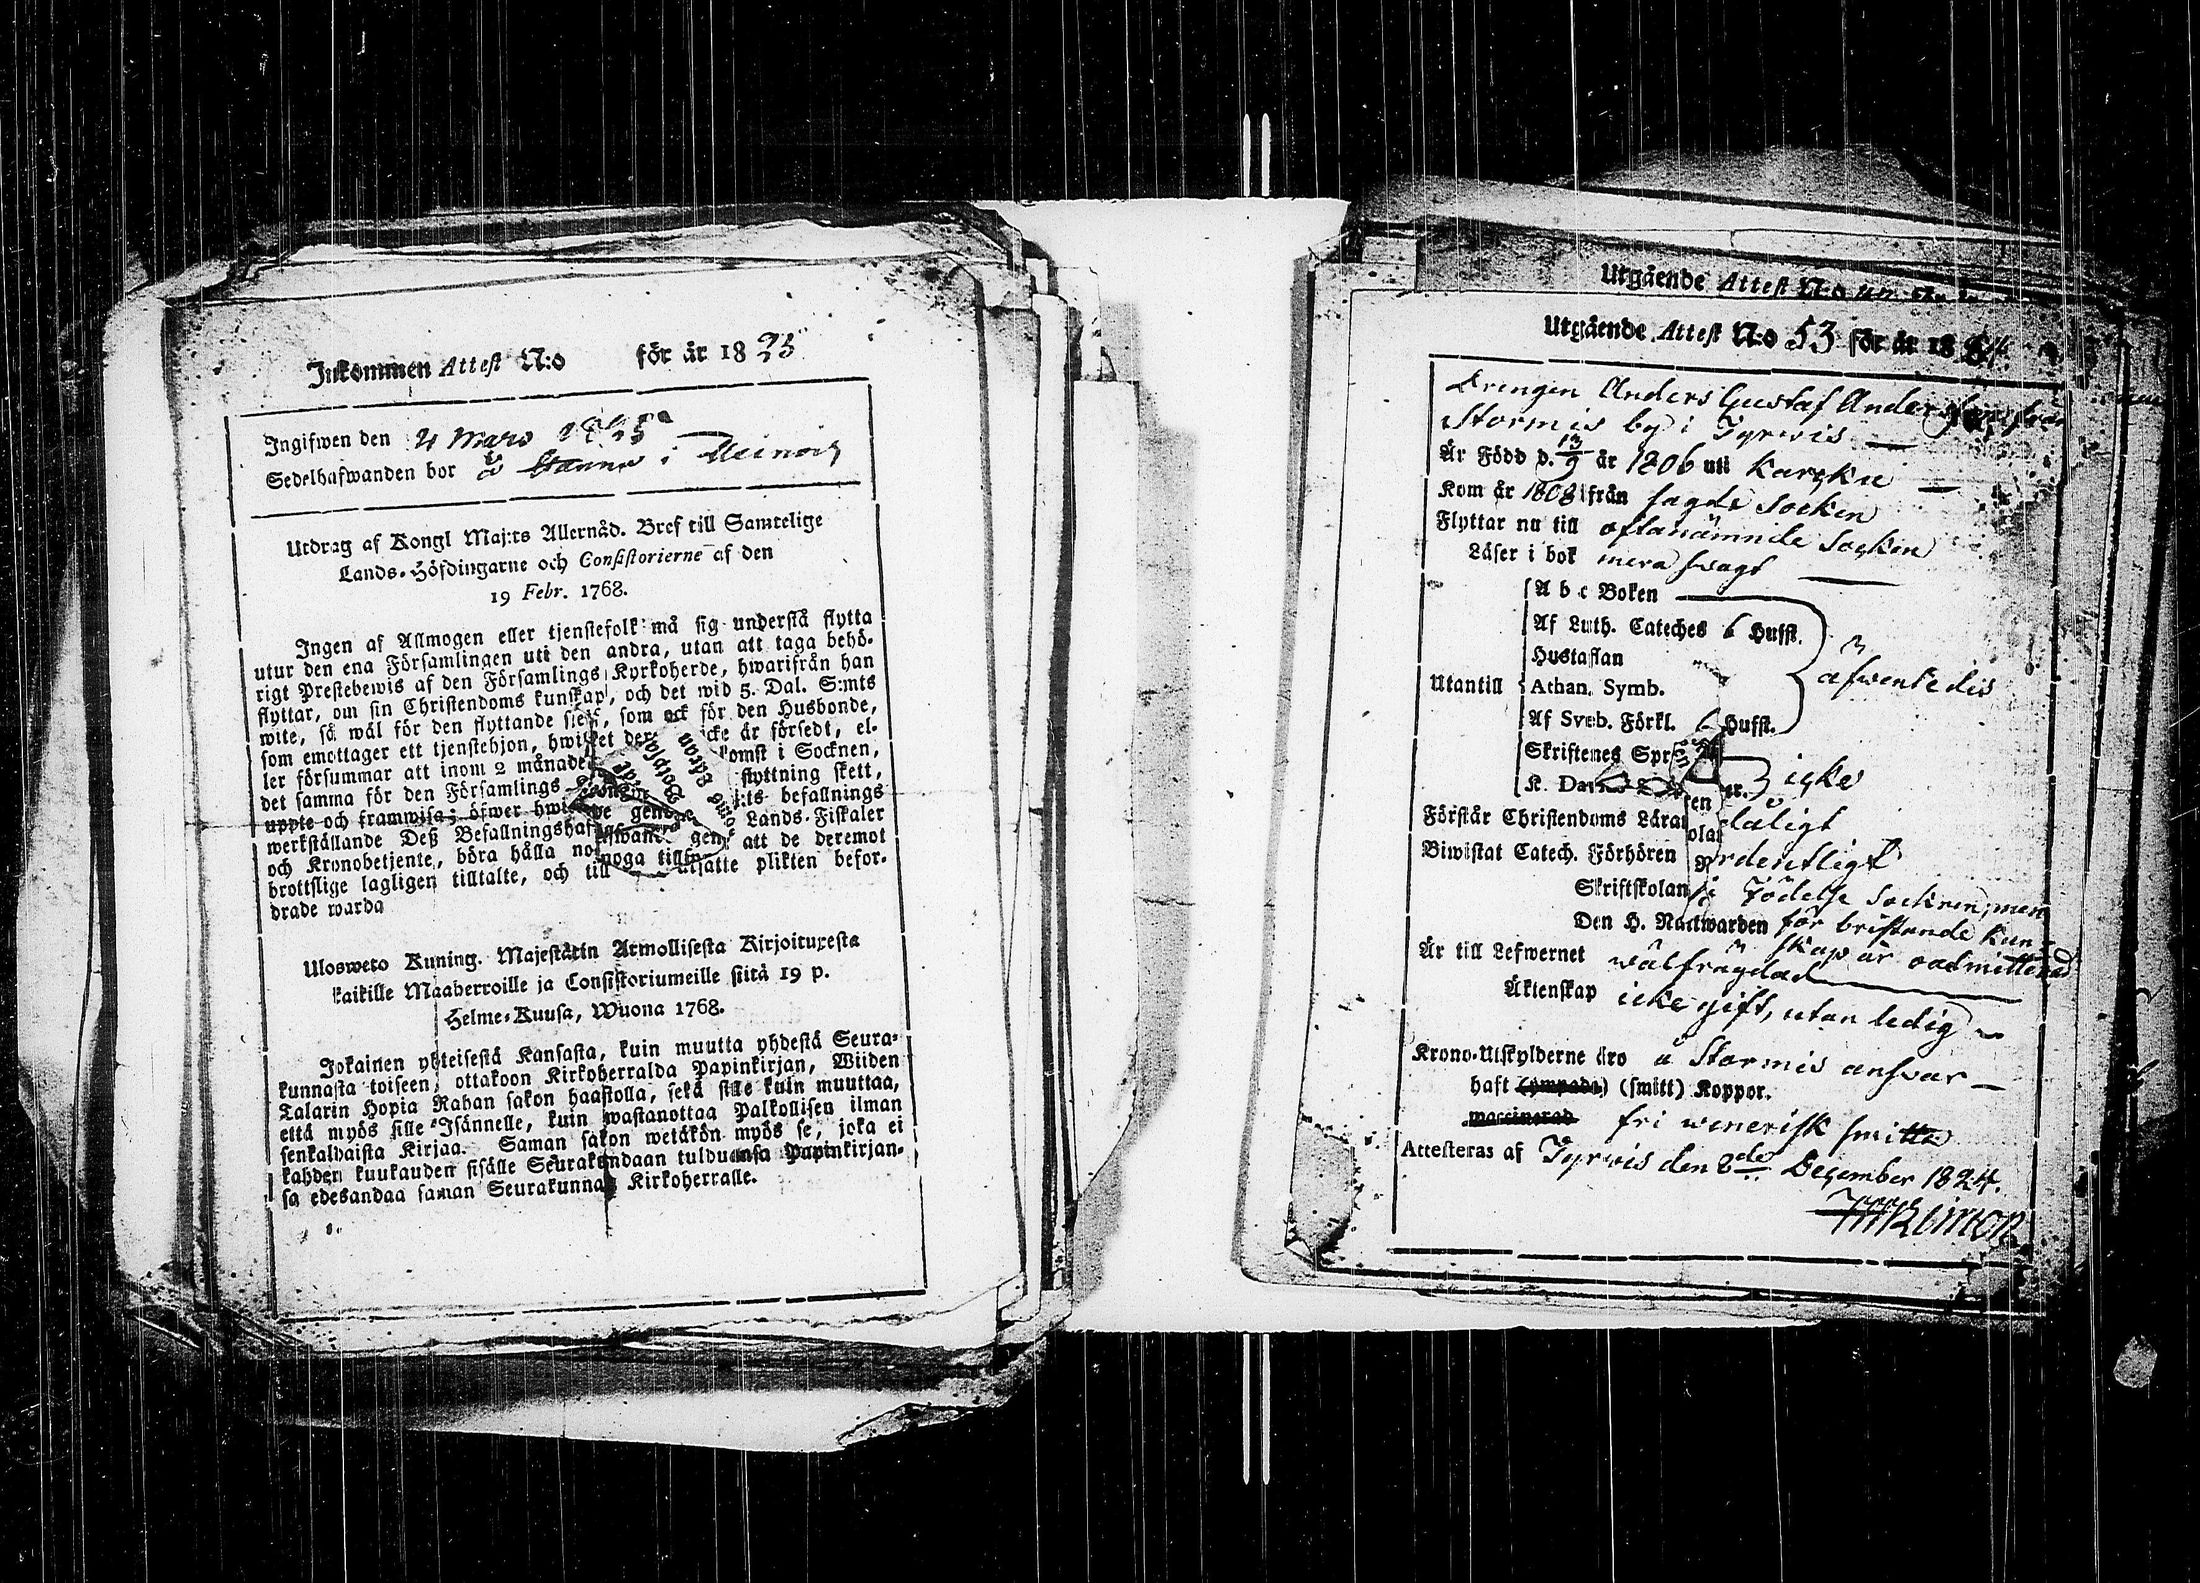 Inkommen Attest N:o för år 1825
Ingifwen den 4 Mars 1825
Sedelhafwanden bor å i
Utdrag af Kongl Maj:ts Allernåd. Bref till Samtelige
Lands-Höfdingarne och Consistorierne af den
19 Febr. 1768.
Ingen af Allmogen eller tjenstefolk må sig understå flytta
utur den ena Församlingen uti den andra, utan att taga behö-
rigt Prestebewis af den Församlings Kyrkoherde, hwarifrån han
flyttar, om sin Christendoms kunskap, och det wid 5. Dal. S:mts
wite, så wäl för den flyttande sjelf, som ock för den Husbonde,
som emottager ett tjenstehjon, hwilket der icke är försedt, el-
ler försummar att inom 2 månade komst i Socknen,
det samma för den Församlings flyttning skett,
uppte och framwisa; öfwer hwi :ts befallnings
werkställande Deß Befallningshaf Lands-Fiskaler
och Kronobetjente, böra hålla noga att de deremot
brottslige lagligen tilltalte, och till utsatte plikten befor-
drade warda
Ulosweto Kuning. Majestätin Armollisesta Kirjoituxesta
kaikille Maaherroille ja Consistoriumeille siitä 19 p.
Helme-Kuusa, Wuona 1768.
Jokainen yhteisestä Kansasta, kuin muutta yhdestä Seura-
kunnasta toiseen, ottakoon Kirkoherralda Papinkirjan, Wiiden
Talarin Hopia Rahan sakon haastolla, sekä sille kuin muuttaa,
että myös sille Isännelle, kuin wastanottaa Palkollisen ilman
senkaldaista Kirjaa. Saman sakon wetäkön myös se, joka ei
kahden kuukauden sisälle Seurakundaan tulduansa Papinkirjan-
sa edesandaa saman Seurakunnan Kirkoherralle.
Utgående Attest N:o
Utgående Attest N:o 53 för år 1824.
Drengen Anders Gustaf Andersson från
Stormis by i Tyrwis
Är Född d. 13/9 år 1806 uti Karkku
Kom år 1808 från sagde Socken
Flyttar nu till oftanämnde Socken
Läser i bok mera swagt
A b c Boken
Af Luth. Cateches 6 Hufst.
Hustaflan
Utantill Athan. Symb. äfwenledis
Af Sveb. Förkl. 6 Hufst.
Skriftenes Spr
K. Dav icke
Förstår Christendoms Läran dåligt
Biwistat Catech. Förhören ordentligt
Skriftskolan i Födelse Socknen, men
Den H. Nattwarden för bristande kun-
skap är oadmitterad
Är till Lefwernet wälfrägdad
Äktenskap icke gift, utan ledig
Krono-Utskylderne äro å Stormis answar
haft (ympade) (smitt) Koppor.
waccinerad fri wenerisk smitta
Attesteras af Tyrwis den 8de December 1824.